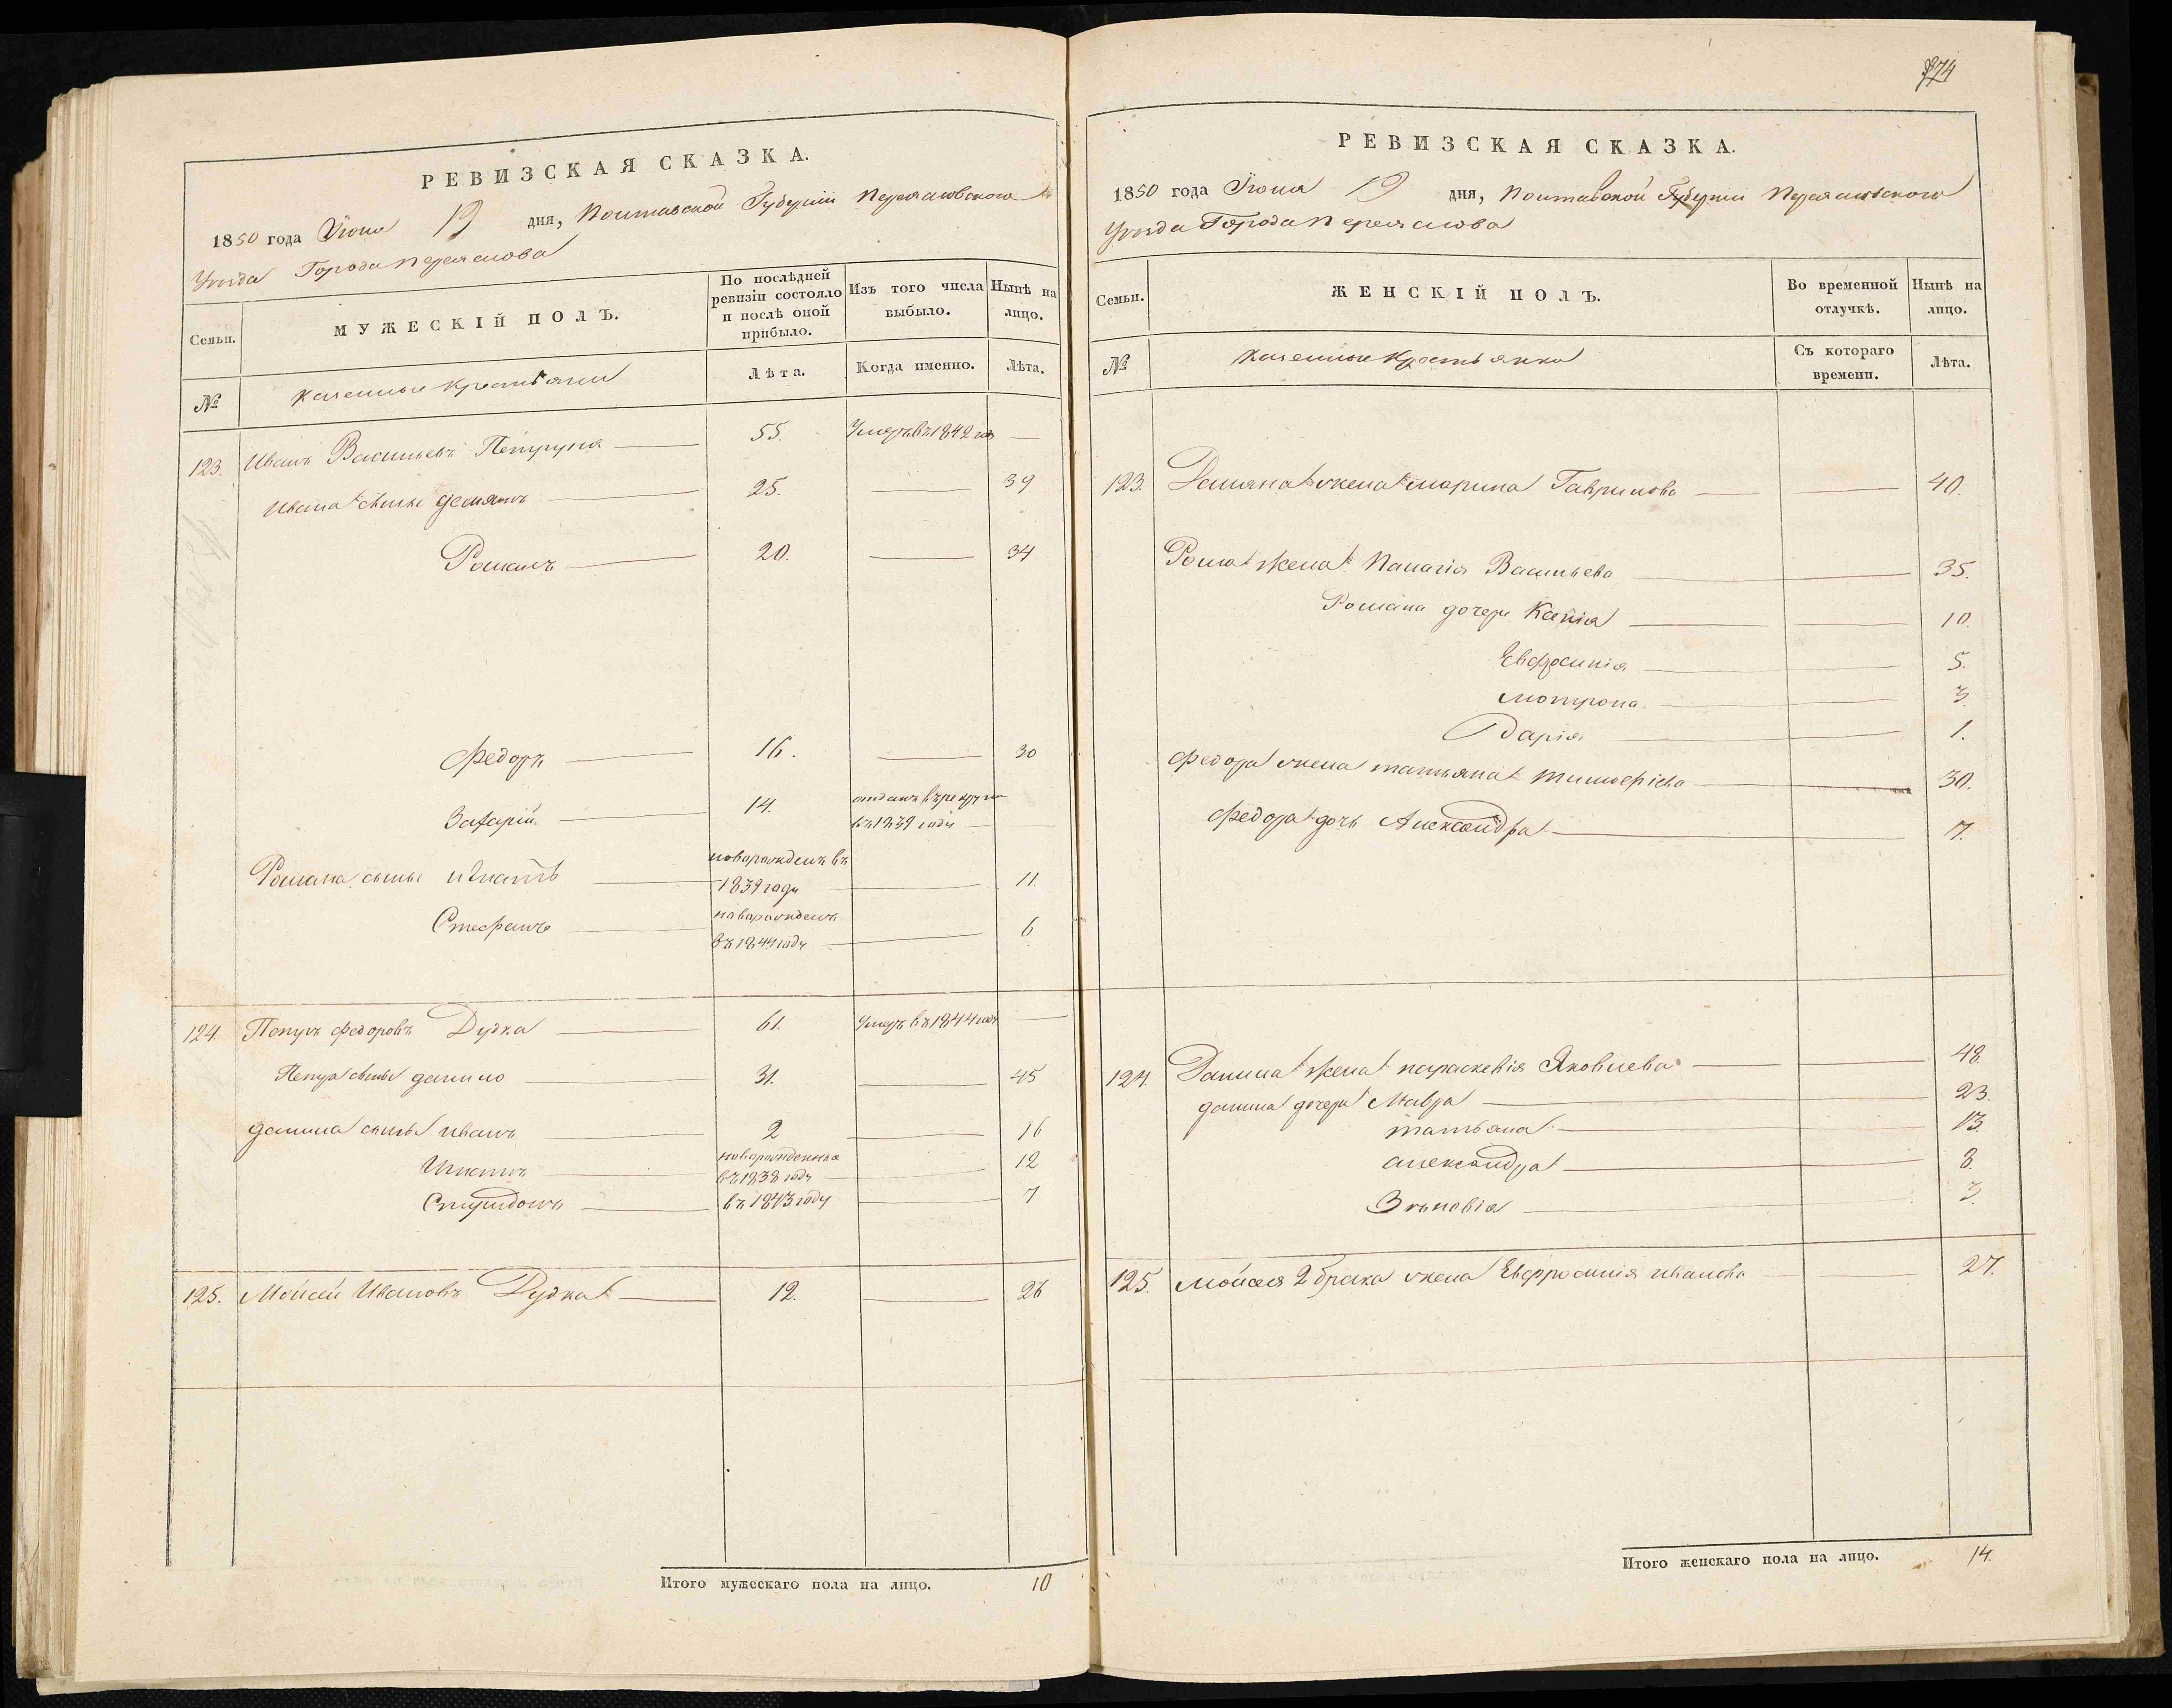 РЕВИЗСКАЯ СКАЗКА.
1850 года Іюня 19 дня, Полтавской Губерніи Переяловского
Уѣзда Города Переяслова
Семьи. МУЖЕСКІЙ ПОЛЪ. По послѣдней ревизіи состояло и послѣ оной прибыло. Изъ того числа выбыло. Нынѣ на лицо.
№ Казенные крестьяни Лѣта. Когда именно. Лѣта.
123. Иванъ Васильевъ Петруня 55. Умеръ въ 1842 год
Ивана сыны Демянъ 25. 39
Романъ 20. 34
Федоръ 16. 30
Захарій 14. отданъ в рекруты
въ 1839 году
Романа сыны Игнатъ новорожденъ въ
1839 году 11.
Стефанъ новорожденъ
въ 1844 году 6
124. Петръ Федоровъ Дудка 61. Умеръ въ 1844 год
Петра сынъ Данило 31. 45
Данила сынъ Иванъ 2 16
Игнатъ новорожденны
въ 1838 году 12
Спиридонъ въ 1843 году 7
125. Мойсей Ивановъ Дудка 12. 26
Итого мужескаго пола на лицо. 10
974
РЕВИЗСКАЯ СКАЗКА.
1850 года Іюня 19 дня, Полтавской Губерніи Переяловского
Уѣзда Города Переяслова
Семьи. ЖЕНСКІЙ ПОЛЪ. Во временной отлучкѣ. Нынѣ на лицо.
№ Казенные крестьянки Съ котораго времени. Лѣта.
123. Демяна жена Марина Гаврилова 40.
Рома жена Палагія Васильева 35.
Романа дочери Ксенія 10.
Евфросинія 5.
Мотрона 3.
Дарія 1.
Федора жена татьяна тимофіева 30.
Федора дочь Александра 7.
124. Данила жена параскевія Яковлева 48.
данила дочери Мавра 23.
татьяна 13.
александра 8.
Зѣновія 3.
125. Мойсея 2 брака жена Евфросинія иванова 27.
Итого женскаго пола на лицо. 14.